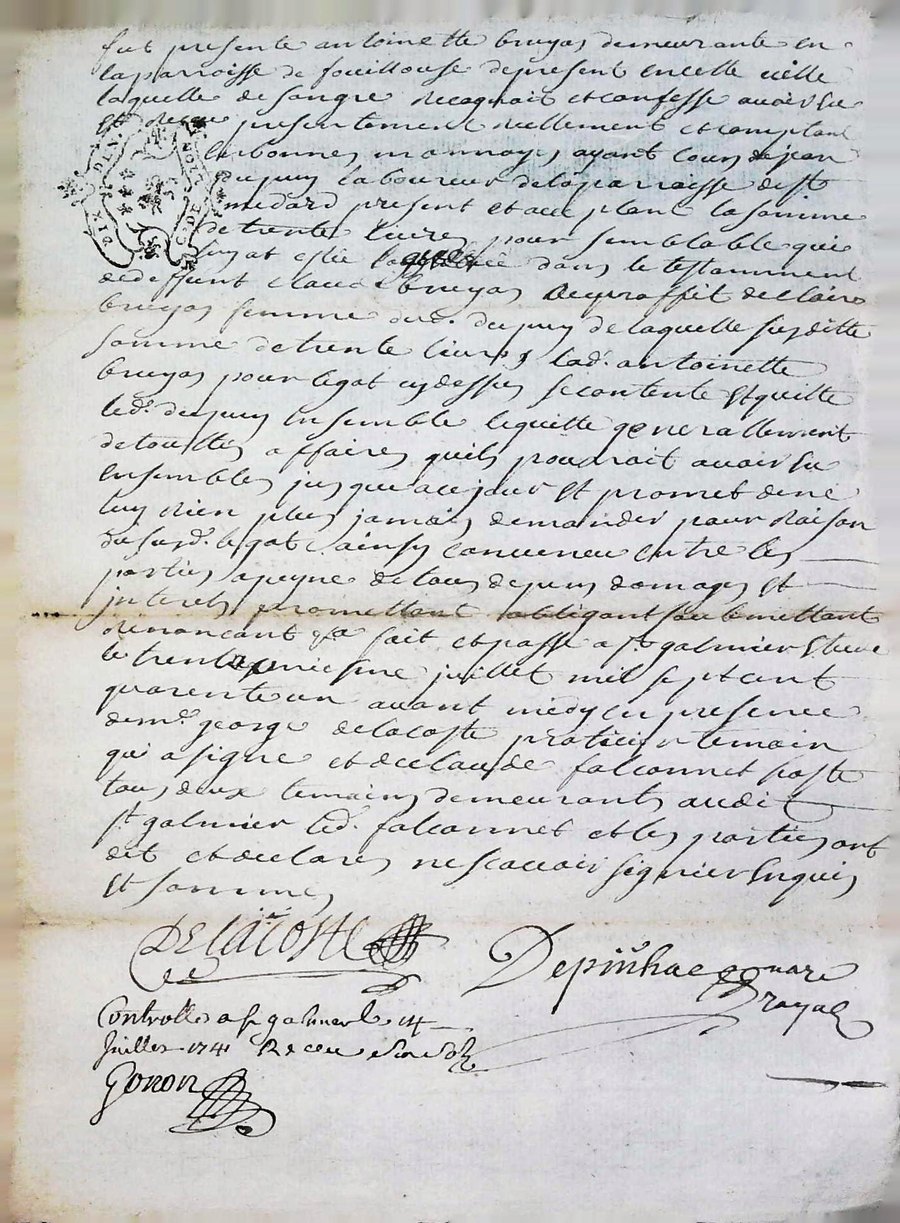 fut presente antoinette bruyas demeurante en
la parroisse de fouillouse de present en cette ville
laquelle de son gre recognait et confesse avoir eu
et receu presentement reellement et comptant
en bonnes monnoyes ayant cours de jean
dupuy laboureur de la parroisse de st
medard present et acceptant la somme
de trente livres pour semblable qui
luy at esté dans le testamment
de deffunt claude bruyas au proffit de claire
bruyas femme dud. dupuy de laquelle susditte
somme de trente livres lad. antoinette
bruyas pour legat cy dessus se contente et quitte
led. dupuy ensemble le quitte generallement
de touttes affaires quils pourrait avoir eu
ensembles jusque a ce jour et promet de ne
luy rien plus jamais demander pour raison
du susd. legat ainsy convenu entre les
parties a peyne de tous depens domages et
interets promettant obligeant soubmettant
renonçant &a fait et passé a st galmier etude
le trente juillet mil sept cent
quarente un avant midy en presence
de me. george delacoste praticien temoin
qui a signé et de claude falconnet poste
tous deux temoins demeurants audit
st galmier led. falconnet et les parties ont
dit et declarer ne scavoir signer enquis
et sommes
Delacoste
Depinhac notaire
Royal
Controllé a st galmier le 14
Juillet 1741 Receu
Gonon
DIX DEN
G. DE LYON